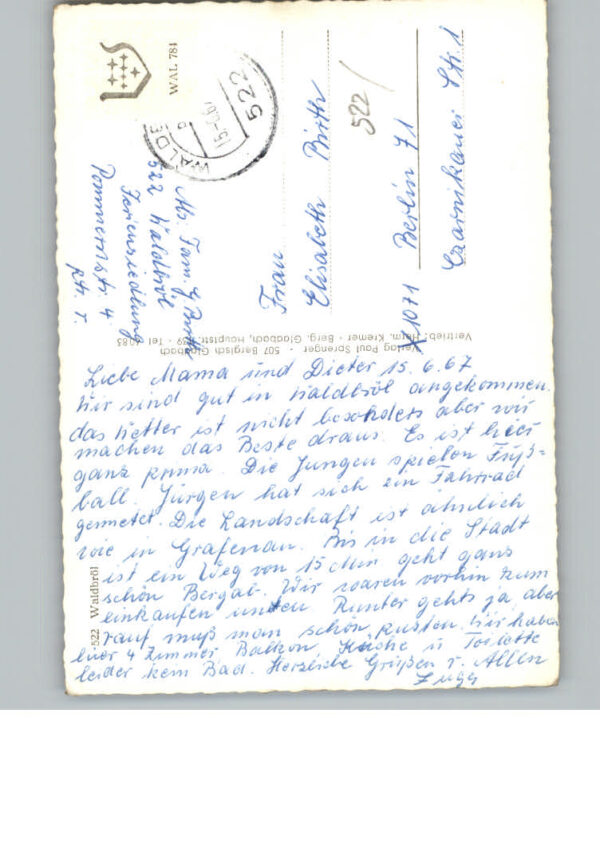 Liebe Mama und Dieter 15.6.67
Wir sind gut in Waldbröl angekommen.
das Wetter ist nicht besonders aber wir
machen das Beste draus. Es ist hier
ganz prima. Die Jungen spielen Fuß=
ball. Jürgen hat sich ein Fahrrad
gemietet. Die Landschaft ist ähnlich
wie in Grafenau. Bis in die Stadt
ist ein Weg von 15 Min geht ganz
schön Bergab. Wir waren vorhin zum
einkaufen unten. Runter gehts ja, aber
rauf muß man schön pusten. Wir haben
hier 4 Zimmer Balkon, Küche u Toilette
leider kein Bad. Herzliche Grüßen v. Allen
522 Waldbröl
Verlag Paul Sprenger - 507 Bergisch Gladbach
Vertrieb: Herm. Kremer - Berg. Gladbach, Hauptstr.
Abs. Fam.
522 Waldbröl
Feriensiedlung
Pommernstr. 4
WAL 784
522
522/
Frau
Elisabeth
1071 Berlin 71
Czarnikauer Str. 1